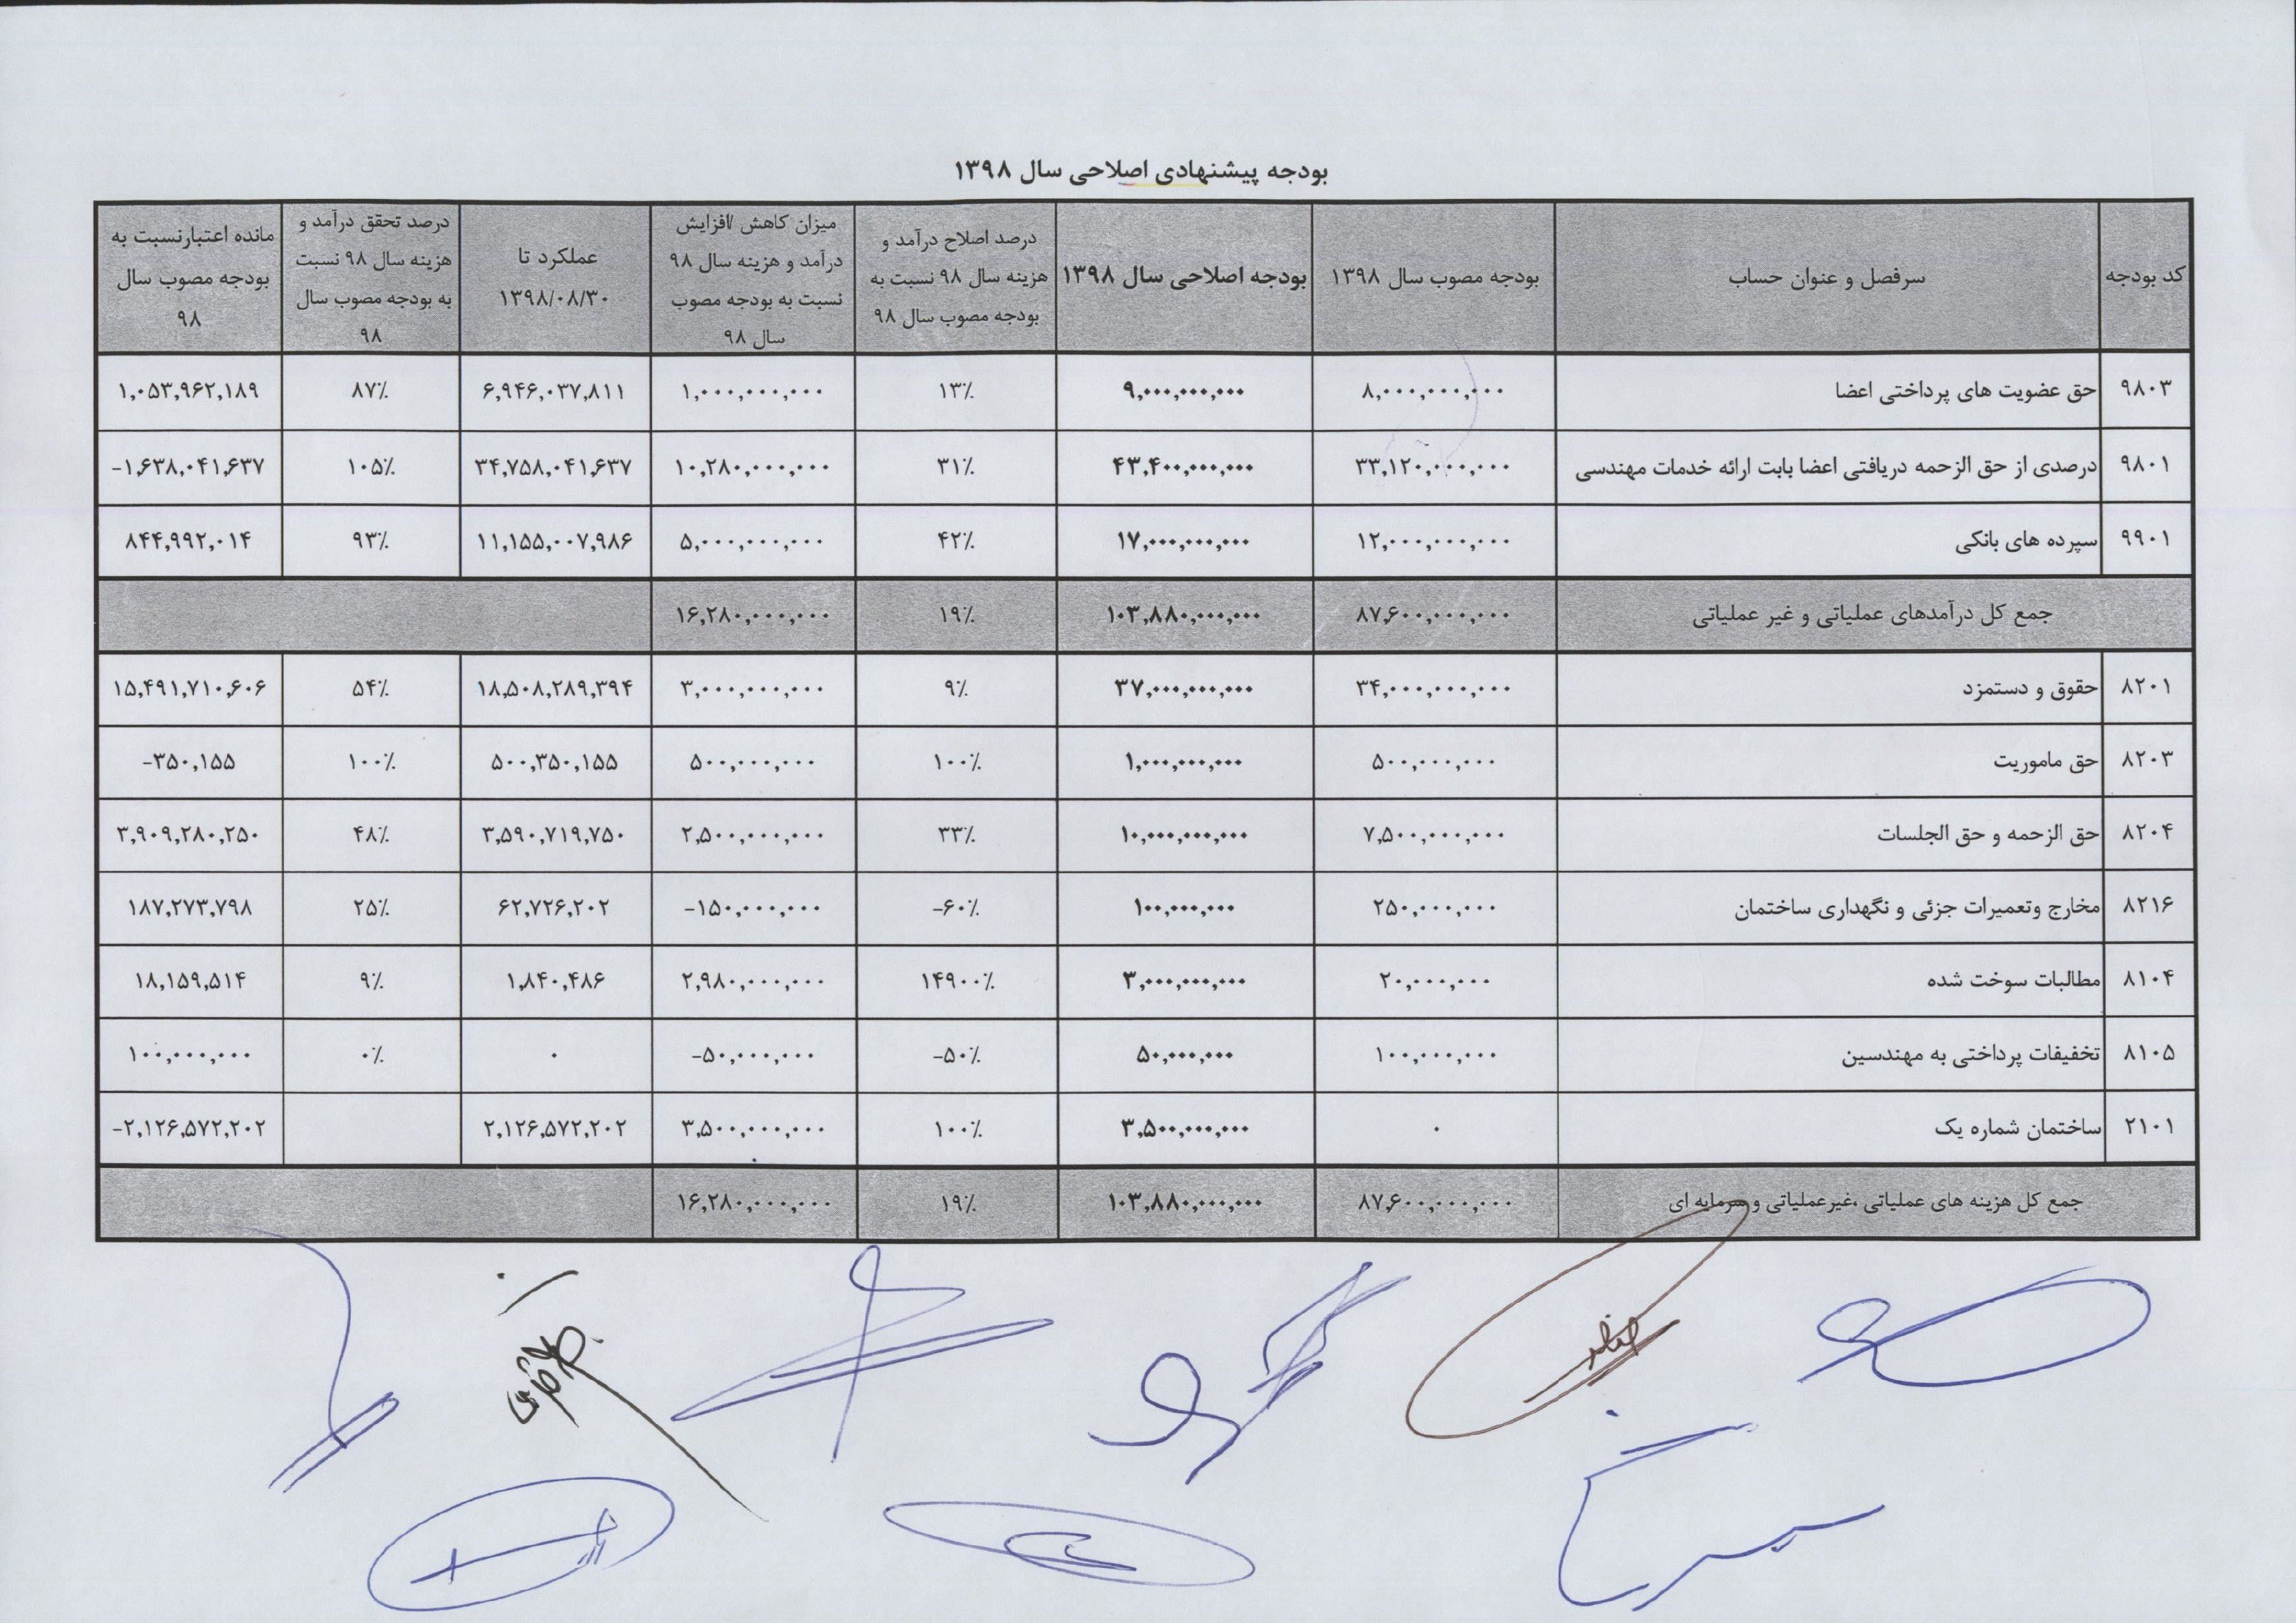 بودجه پیشنهادی اصلاحی سال ۱۳۹۸
کد بودجه سرفصل و عنوان حساب بودجه مصوب سال ۱۳۹۸ بودجه اصلاحی سال ۱۳۹۸ درصد اصلاح درآمد و هزینه سال ۹۸ نسبت به بودجه مصوب سال ۹۸ میزان کاهش /افزایش درآمد و هزینه سال ۹۸ نسبت به بودجه مصوب سال ۹۸ عملکرد تا ۱۳۹۸/۰۸/۳۰ درصد تحقق درآمد و هزینه سال ۹۸ نسبت به بودجه مصوب سال ۹۸ مانده اعتبارنسبت به بودجه مصوب سال ۹۸
۹۸۰۳ حق عضویت های پرداختی اعضا ۸,۰۰۰,۰۰۰,۰۰۰ ۹,۰۰۰,۰۰۰,۰۰۰ ۱۳٪ ۱,۰۰۰,۰۰۰,۰۰۰ ۶,۹۴۶,۰۳۷,۸۱۱ ۸۷٪ ۱,۰۵۳,۹۶۲,۱۸۹
۹۸۰۱ درصدی از حق الزحمه دریافتی اعضا بابت ارائه خدمات مهندسی ۳۳,۱۲۰,۰۰۰,۰۰۰ ۴۳,۴۰۰,۰۰۰,۰۰۰ ۳۱٪ ۱۰,۲۸۰,۰۰۰,۰۰۰ ۳۴,۷۵۸,۰۴۱,۶۳۷ ۱۰۵٪ -۱,۶۳۸,۰۴۱,۶۳۷
۹۹۰۱ سپرده های بانکی ۱۲,۰۰۰,۰۰۰,۰۰۰ ۱۷,۰۰۰,۰۰۰,۰۰۰ ۴۲٪ ۵,۰۰۰,۰۰۰,۰۰۰ ۱۱,۱۵۵,۰۰۷,۹۸۶ ۹۳٪ ۸۴۴,۹۹۲,۰۱۴
جمع کل درآمدهای عملیاتی و غیر عملیاتی ۸۷,۶۰۰,۰۰۰,۰۰۰ ۱۰۳,۸۸۰,۰۰۰,۰۰۰ ۱۹٪ ۱۶,۲۸۰,۰۰۰,۰۰۰
۸۲۰۱ حقوق و دستمزد ۳۴,۰۰۰,۰۰۰,۰۰۰ ۳۷,۰۰۰,۰۰۰,۰۰۰ ۹٪ ۳,۰۰۰,۰۰۰,۰۰۰ ۱۸,۵۰۸,۲۸۹,۳۹۴ ۵۴٪ ۱۵,۴۹۱,۷۱۰,۶۰۶
۸۲۰۳ حق ماموریت ۵۰۰,۰۰۰,۰۰۰ ۱,۰۰۰,۰۰۰,۰۰۰ ۱۰۰٪ ۵۰۰,۰۰۰,۰۰۰ ۵۰۰,۳۵۰,۱۵۵ ۱۰۰٪ -۳۵۰,۱۵۵
۸۲۰۴ حق الزحمه و حق الجلسات ۷,۵۰۰,۰۰۰,۰۰۰ ۱۰,۰۰۰,۰۰۰,۰۰۰ ۳۳٪ ۲,۵۰۰,۰۰۰,۰۰۰ ۳,۵۹۰,۷۱۹,۷۵۰ ۴۸٪ ۳,۹۰۹,۲۸۰,۲۵۰
۸۲۱۶ مخارج وتعمیرات جزئی و نگهداری ساختمان ۲۵۰,۰۰۰,۰۰۰ ۱۰۰,۰۰۰,۰۰۰ -۶۰٪ -۱۵۰,۰۰۰,۰۰۰ ۶۲,۷۲۶,۲۰۲ ۲۵٪ ۱۸۷,۲۷۳,۷۹۸
۸۱۰۴ مطالبات سوخت شده ۲۰,۰۰۰,۰۰۰ ۳,۰۰۰,۰۰۰,۰۰۰ ۱۴۹۰۰٪ ۲,۹۸۰,۰۰۰,۰۰۰ ۱,۸۴۰,۴۸۶ ۹٪ ۱۸,۱۵۹,۵۱۴
۸۱۰۵ تخفیفات پرداختی به مهندسین ۱۰۰,۰۰۰,۰۰۰ ۵۰,۰۰۰,۰۰۰ -۵۰٪ -۵۰,۰۰۰,۰۰۰ ۰ ۰٪ ۱۰۰,۰۰۰,۰۰۰
۲۱۰۱ ساختمان شماره یک ۰ ۳,۵۰۰,۰۰۰,۰۰۰ ۱۰۰٪ ۳,۵۰۰,۰۰۰,۰۰۰ ۲,۱۲۶,۵۷۲,۲۰۲ -۲,۱۲۶,۵۷۲,۲۰۲
جمع کل هزینه های عملیاتی ،غیرعملیاتی و سرمایه ای ۸۷,۶۰۰,۰۰۰,۰۰۰ ۱۰۳,۸۸۰,۰۰۰,۰۰۰ ۱۹٪ ۱۶,۲۸۰,۰۰۰,۰۰۰